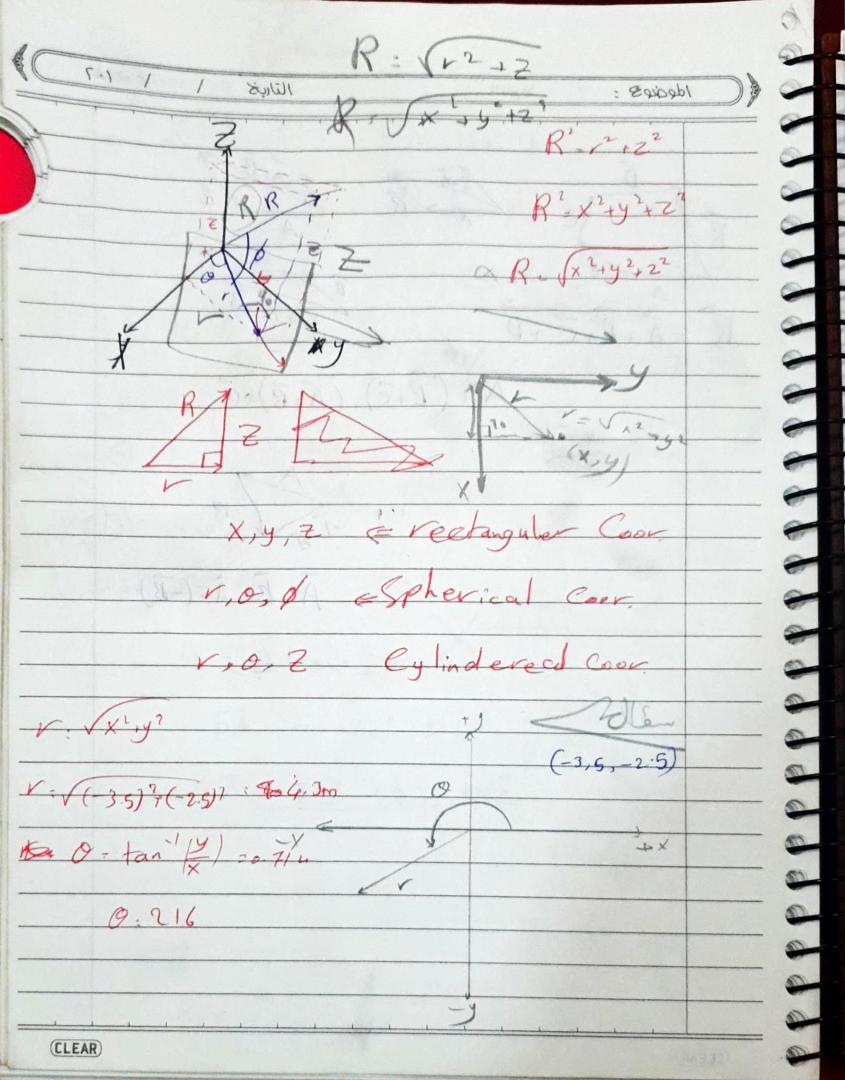 R = √r² + z
الموضوع :
التاريخ / / ٢٠١
R = √x² + y² + z²
Z
R² = r² + z²
R R
R² = x² + y² + z²
z
φ
z Z
θ
R = √x² + y² + z²
r
X
y
y
R
Z
r
r
r = √x² + y²
(x, y)
x
x, y, z ⇐ rectanguler Coor.
r, θ, φ ⇐ Spherical Coor.
r, θ, Z Cylindered Coor.
r = √x² + y²
+y
سؤال
(-3,5, -2.5)
r = √(-3.5)² + (-2.5)² = 4.3m
θ
+x
θ = tan⁻¹ (y/x) = 0.714
r
θ = 216
-y
CLEAR